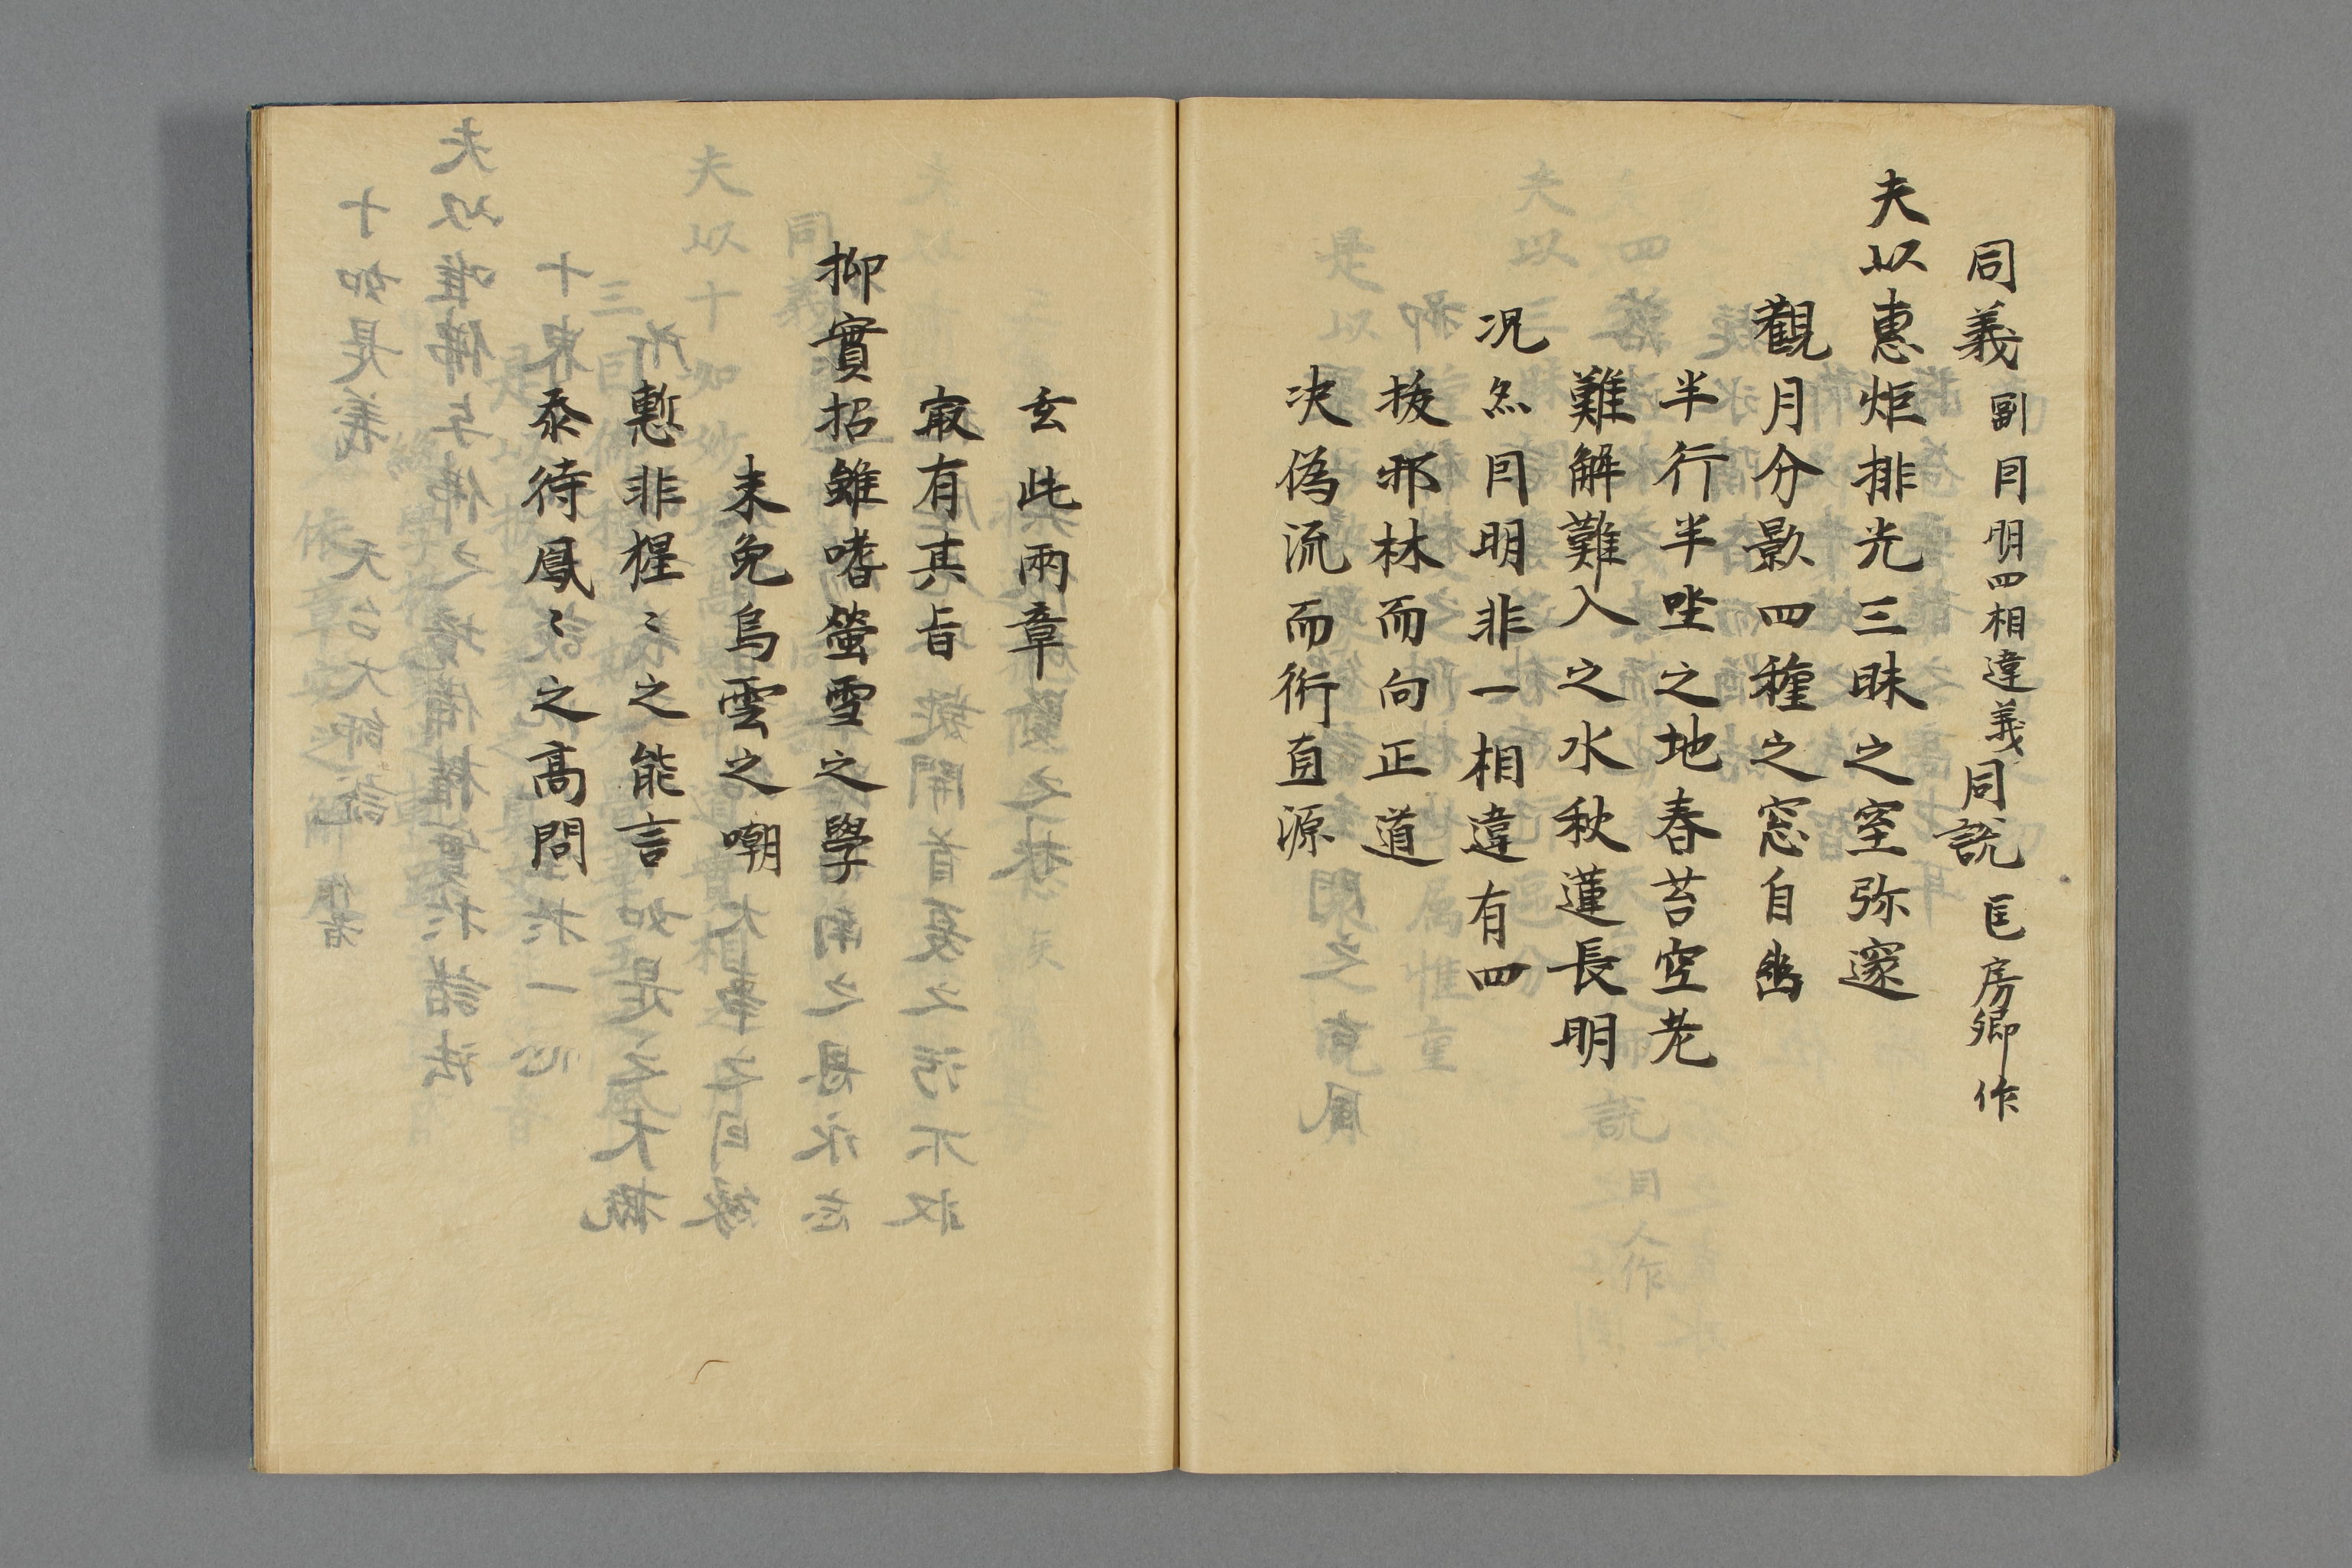 同義副因明四相違義同説匡房卿作
夫以惠炬排光三昧之室弥邃
觀月分影四種之窓自幽
半行半唑之地春苔空老
難解難入之水秋蓮長明
况尓因明非一相違有四
拔邪林而向正道
决偽流而衍直源
玄此兩章
㝡有其旨
抑實招雖嗜螢雪之學
未免烏雲之嘲
慙非猩〻之能言
忝待鳳〻之高問